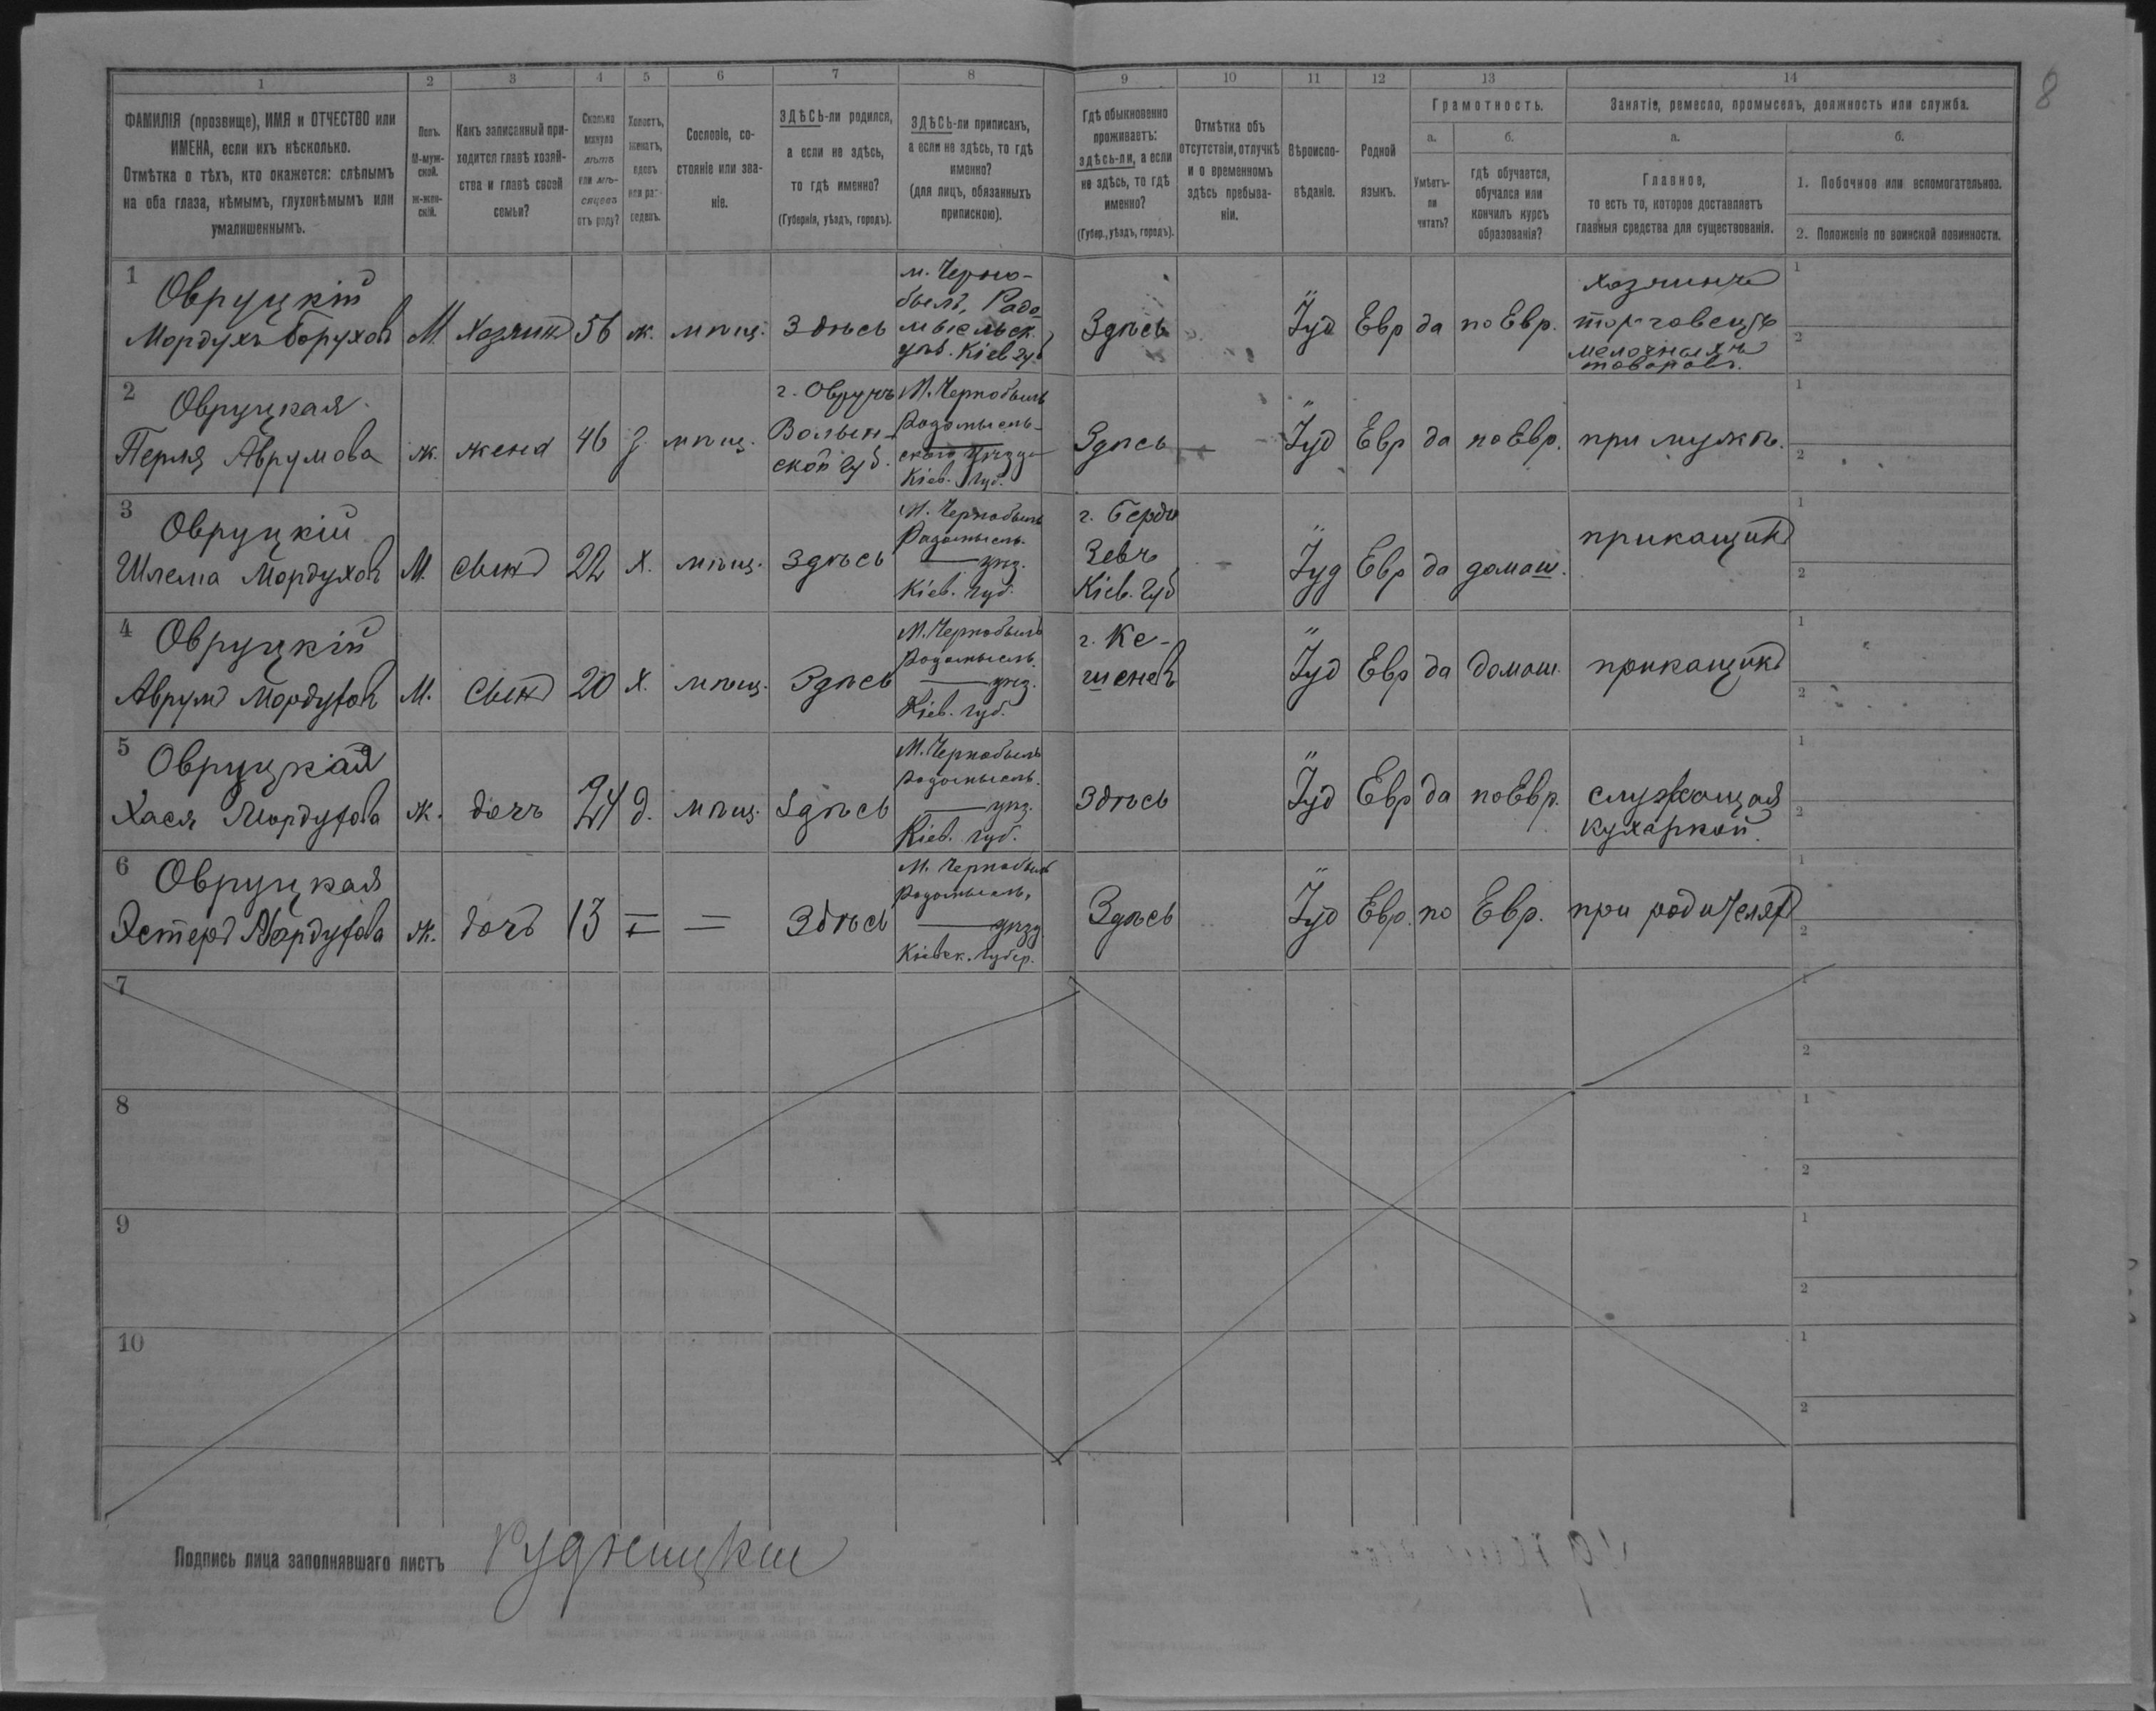 8
1 2 3 4 5 6 7 8 9 10 11 12 13 14
ФАМИЛІЯ (прозвище), ИМЯ и ОТЧЕСТВО или
ИМЕНА, если ихъ нѣсколько.
Отмѣтка о тѣхъ, кто окажется: слѣпымъ
на оба глаза, нѣмымъ, глухонѣмымъ или
умалишеннымъ.
Полъ.
М-муж-
ской.
ж-жен-
скій.
Какъ записанный при-
ходится главѣ хозяй-
ства и главѣ своей
семьи?
Сколько
минуло
лѣтъ
или мѣ-
сяцевъ
отъ роду?
Холостъ,
женатъ,
вдовъ
или раз-
веденъ.
Сословіе, со-
стояніе или зва-
ніе.
ЗДѢСЬ-ли родился,
а если не здѣсь,
то гдѣ именно?
(Губернія, уѣздъ, городъ).
ЗДѢСЬ-ли приписанъ,
а если не здѣсь, то гдѣ
именно?
(для лицъ, обязанныхъ
припискою).
Гдѣ обыкновенно
проживаетъ:
здѣсь-ли, а если
не здѣсь, то гдѣ
именно?
(Губер., уѣздъ, городъ).
Отмѣтка объ
отсутствіи, отлучкѣ
и о временномъ
здѣсь пребыва-
ніи.
Вѣроиспо-
вѣданіе.
Родной
языкъ.
Грамотность.
а.
Умѣетъ-
ли
читать?
б.
гдѣ обучается,
обучался или
кончилъ курсъ
образованія?
Занятіе, ремесло, промыселъ, должность или служба.
а.
Главное,
то есть то, которое доставляетъ
главныя средства для существованія.
б.
1. Побочное или вспомогательное.
2. Положеніе по воинской повинности.
1
Овруцкій
Мордухъ Боруховъ
М.
Хозяинъ
56
ж.
мѣщ.
Здѣсь
м. Черно-
быль, Радо
мысльск.
уѣз. Кіев губ
Здѣсь
Іуд
Евр
да
по Евр.
хозяинъ
торговецъ
мелочныхъ
товаровъ.
1
2
2
Овруцкая
Перля Аврумова
ж.
жена
46
з.
мѣщ.
г. Овручъ
Волын-
ской губ.
М. Чернобыль
Радомысль-
скаго уѣзда
Кіев. губ.
Здѣсь
Іуд
Евр
да
по Евр.
при мужѣ.
1
2
3
Овруцкій
Шлема Мордухов
М.
сынъ
22
х.
мѣщ.
Здѣсь
М. Чернобыль
Радомысль.
уѣз.
Кіев. губ.
г. Берди
чевъ
Кіев. губ
Іуд
Евр
да
домаш.
прикащикъ
1
2
4
Овруцкій
Аврумъ Мордухов
М.
сынъ
20
х.
мѣщ.
Здѣсь
М. Чернобыль
Радомысль.
уѣз.
Кіев. губ.
г. Ке-
шеневъ
Іуд
Евр
да
домаш.
прикащикъ
1
2
5
Овруцкая
Хася Мордухова
ж.
дочь
24
д.
мѣщ.
Здѣсь
М. Чернобыль
Радомысль.
уѣз.
Кіев. губ.
Здѣсь
Іуд
Евр
да
по Евр.
служащая
кухаркой.
1
2
6
Овруцкая
Эстеръ Мордухова
ж.
дочь
13
Здѣсь
М. Чернобыль
Радомысль,
уѣзд
Кіевск. губер.
Здѣсь
Іуд
Евр.
по
Евр.
при родителяхъ
1
2
7
1
2
8
1
2
9
1
2
10
1
2
Подпись лица заполнявшаго листъ
Рудницкий